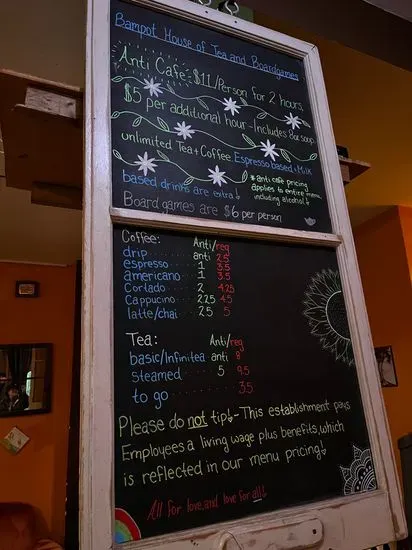 Bampot House of Tea and Boardgames
Anti Cafe - $11/Person for 2 hours.
$5 per additional hour - Includes 8oz soup
unlimited Tea + Coffee. Espresso based & Milk
based drinks are extra!
*anti café pricing
applies to entire menu
including alcohol!
Board games are $6 per person
Coffee: Anti/reg
drip anti 2.5
espresso 1 3.5
americano 1 3.5
Cortado 2 4.25
Cappucino 2.25 4.5
latte/chai 2.5 5
Tea: Anti/reg
basic/Infinitea anti 8
steamed 5 9.5
to go 3.5
Please do not tip! - This establishment pays
Employees a living wage plus benefits, which
is reflected in our menu pricing!
All for love, and love for all!